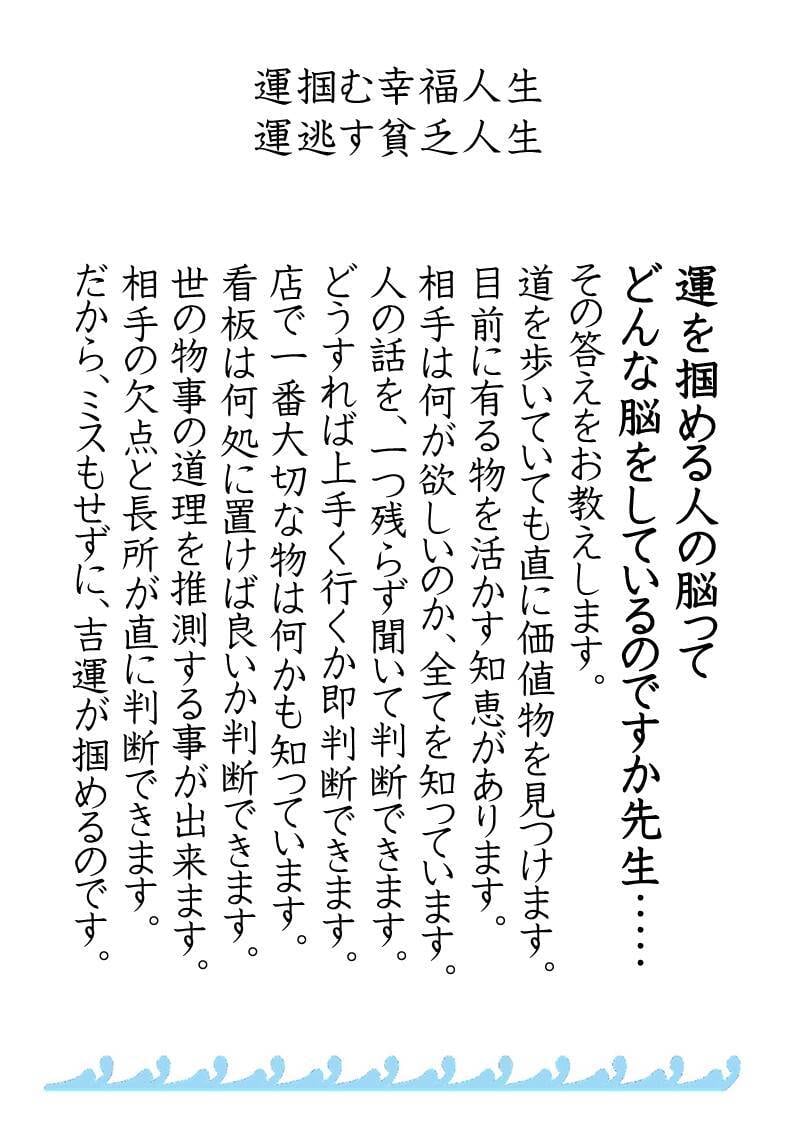 運掴む幸福人生
運逃す貧乏人生
運を掴める人の脳って
どんな脳をしているのですか先生……
その答えをお教えします。
道を歩いていても直に価値物を見つけます。
目前に有る物を活かす知恵があります。
相手は何が欲しいのか、全てを知っています。
人の話を、一つ残らず聞いて判断できます。
どうすれば上手く行くか即判断できます。
店で一番大切な物は何かも知っています。
看板は何処に置けば良いか判断できます。
世の物事の道理を推測する事が出来ます。
相手の欠点と長所が直に判断できます。
だから、ミスもせずに、吉運が掴めるのです。